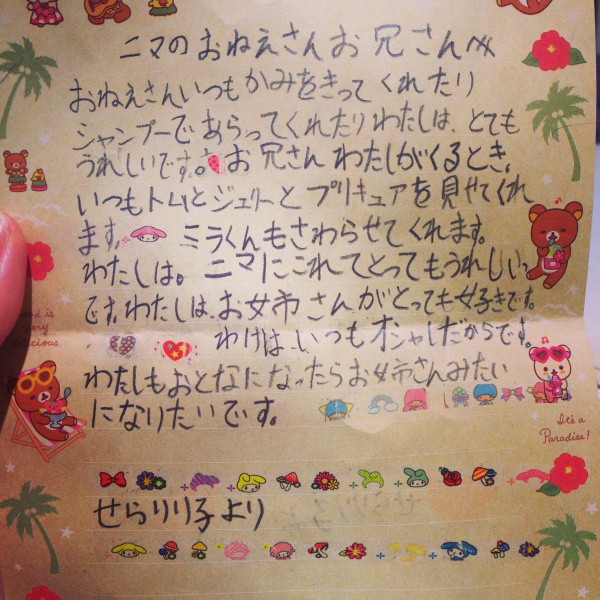 ニマのおねえさんお兄さんへ
おねえさんいつもかみをきってくれたり
シャンプーであらってくれたりわたしは、とても
うれしいです。お兄さんわたしがくるとき、
いつもトムとジェリーとプリキュアを見せてくれ
ます。ミラくんもさわらせてくれます。
わたしは。ニマにこれてとってもうれしいっ
です。わたしは、お姉さんがとっても好きです。
わけは、いつもオシャレだからです。
わたしもおとなになったらお姉さんみたい
になりたいです。
せらりり子より
It's a
Paradise!